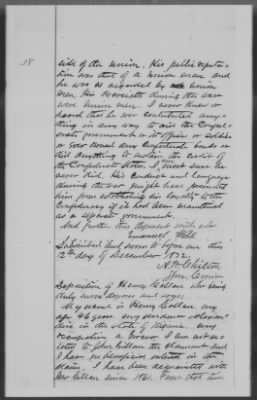 18
side of the union. His public reputa-
tion was that of a union man and
he was so regarded by union
men. His associates during the war
were union men. I never knew or
heard that he ever contributed any-
thing in any way to aid the Confed-
erate government or its officers or soldiers
or ever owned any Confederate bonds or
did anything to sustain the credit of
the Confederate States. I am sure he
never did. His conduct and language
during the war might have prevented
him from establishing his loyalty to the
Confederacy if it had been maintained
as a separate government.
And further this deponent saith not
Emanuel
Subscribed and sworn to before me this
12th day of December 1872.
A. W. Chilton
Spec. Comr
Deposition of Henry who being
duly sworn deposes and says:
My name is Henry my
age 46 years my residence Alexan-
dria in the State of Virginia my
occupation a Grocer I am not re-
lated to John the claimant and
I have no beneficial interest in the
claim, I have been acquainted with
since 1861. From that time